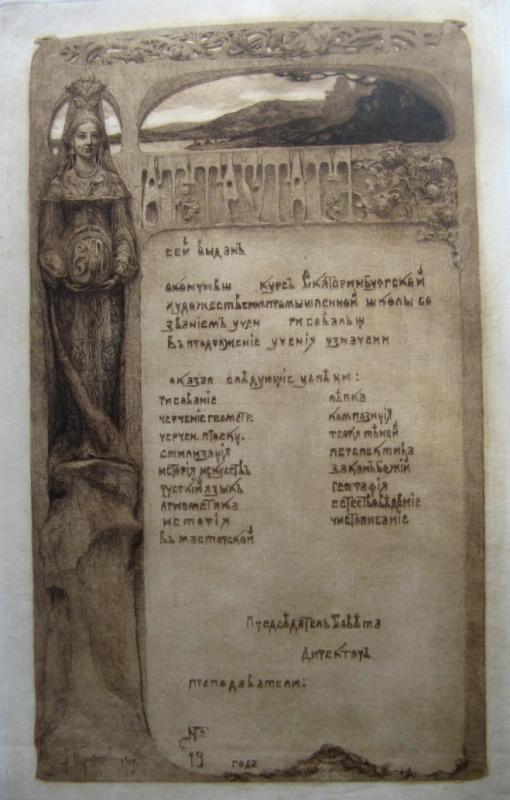 АТТЕСТАТЪ
СЕЙ ВЫДАНЪ
ОКОНЧИВШ КУРСЪ ЕКАТЕРИНБУРГСКОЙ
ХУДОЖЕСТВЕННОПРОМЫШЛЕННОЙ ШКОЛЫ СО
ЗВАНІЕМЪ УЧЕН РИСОВАЛЬЩ
ВЪ ПРОДОЛЖЕНІЕ УЧЕНІЯ
ОКАЗАЛ СЛѢДУЮЩІЕ УСПѢХИ:
РИСОВАНІЕ ЛѢПКА
ЧЕРЧЕНІЕ ГЕОМЕТР. КОМПОЗИЦІЯ
ЧЕРЧЕН. ПРОЕКЦ. ТЕОРІЯ ТѢНЕЙ
СТИЛИЗАЦІЯ ПЕРСПЕКТИВА
ИСТОРІЯ ИСКУССТВЪ ЗАКОНЪ БОЖІЙ
РУССКІЙ ЯЗЫКЪ ГЕОГРАФІЯ
АРИѲМЕТИКА ЕСТЕСТВОВѢДѢНІЕ
ИСТОРІЯ ЧИСТОПИСАНІЕ
ВЪ МАСТЕРСКОЙ
ПРЕДСѢДАТЕЛЬ СОВѢТА
ДИРЕКТОРЪ
ПРЕПОДАВАТЕЛИ:
№
19 ГОДА